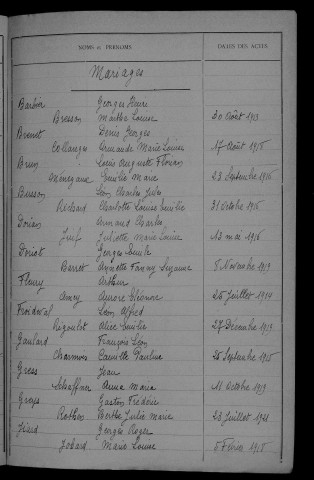 NOMS et PRÉNOMS DATES DES ACTES
Mariages
Barbier Georges
Bresson Marthe Louise 30 Août 1913
Denis Georges
Collanges Marie Louise 17 Août 1915
Brun Louis Auguste
Emilie Marie 23 Septembre 1916
Busson Léon Charles Jules
Richard Charlotte Louise Emilie 31 Octobre 1916
Armand Charles
Juif Juliette Marie Louise 13 mai 1916
Doriot Georges Emile
Barret Fanny Suzanne 8 Novembre 1919
Fleury Arthur
Amey Aurore Eléonor 25 Juillet 1914
Froideval Léon Alfred
Rigoulot Alice Emilie 27 Décembre 1919
Gaulard François Léon
Charmois Camille Pauline 25 Septembre 1915
Gress Jean
Schaffner Anna Maria 11 Octobre 1919
Gaston Frédéric
Berthe Julie Marie 23 Juillet 1921
Georges Roger
Jobard Marie Louise 5 Février